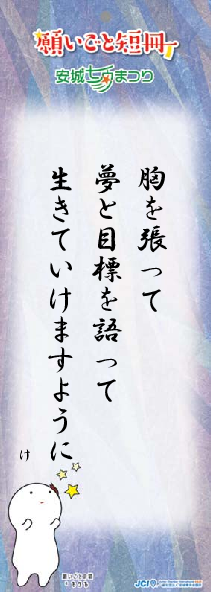 願いごと短冊
安城七夕まつり
胸を張って
夢と目標を語って
生きていけますように
け
JCI